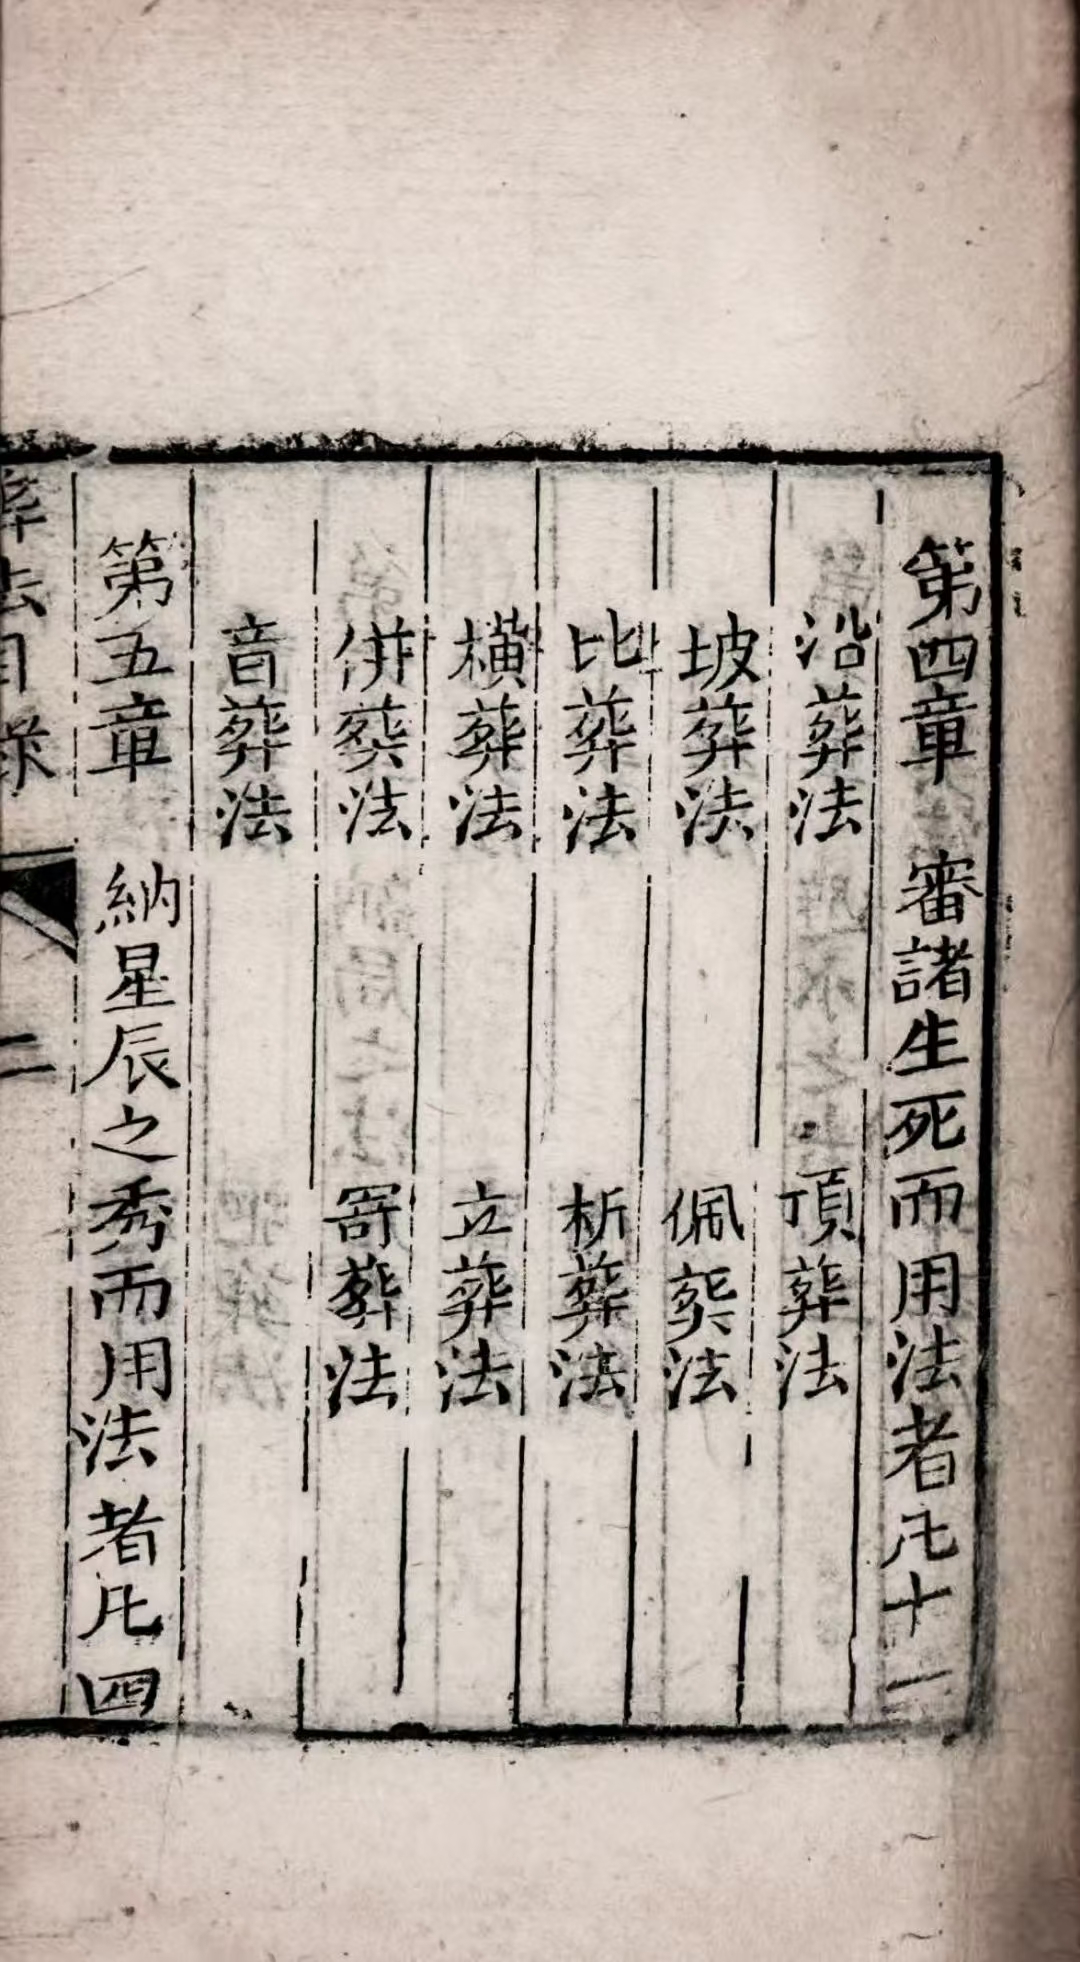 第四章　審諸生死而用法者凡十一
沿葬法　頂葬法
坡葬法　佩葬法
比葬法　析葬法
橫葬法　立葬法
併葬法　寄葬法
音葬法
第五章　納星辰之秀而用法者凡四
葬法目錄　二